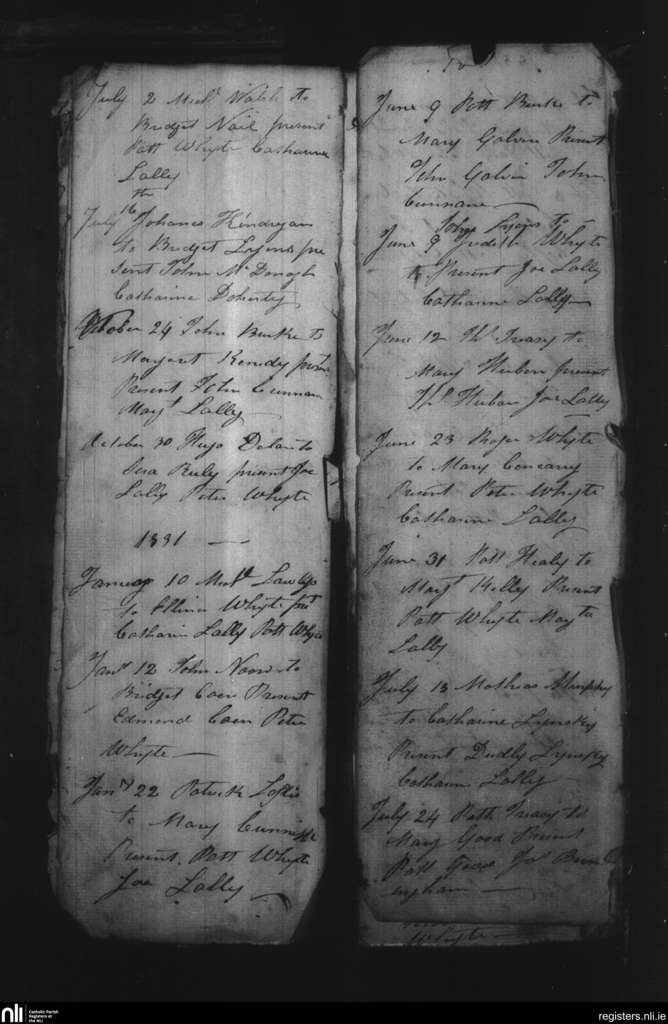 July 2 Michl Walsh to
Bridget Nail present
Patt Whyte Catharine
Lally
th
July 16 Johanes
to Bridget Lyons pre
sent John McDonagh
Catharine Doherty
October 24 John Burke to
Margaret Kenedy
Present John Cunnane
Mayt Lally
October 30 Hugo Dolan to
present Joe
Lally Peter Whyte
1831 —
January 10 Michl Lawless
to Ellinor Whyte pret
Catharin Lally Patt Whyte
Jany 12 John Noon to
Bridget Coen Present
Edmond Coen Peter
Whyte —
Jany 22 Patrick Loftis
to Mary
Present Patt Whyte
Joe Lally —
June 9 Patt Burke to
Mary Galvin Present
John Galvin John
Cunnane —
John Lyons to
June 9 Judith Whyte
Present Joe Lally
Catharine Lally —
June 12 Ths Treacy to
Mary present
Ths Joe Lally
June 23 Roger Whyte
to Mary Concany
Present Peter Whyte
Catharine Lally
June 31 Patt Healy to
Mayt Kelly Present
Patt Whyte
Lally
July 13 Mathias Murphy
to Catharine Lynskey
Present Dudly Lynskey
Catharine Lally —
July 24 Patk Treacy to
Mary Good Present
Patt Good Js Birm
ingham —
Whyte —
nli
Catholic Parish
Registers at
the NLI
registers.nli.ie